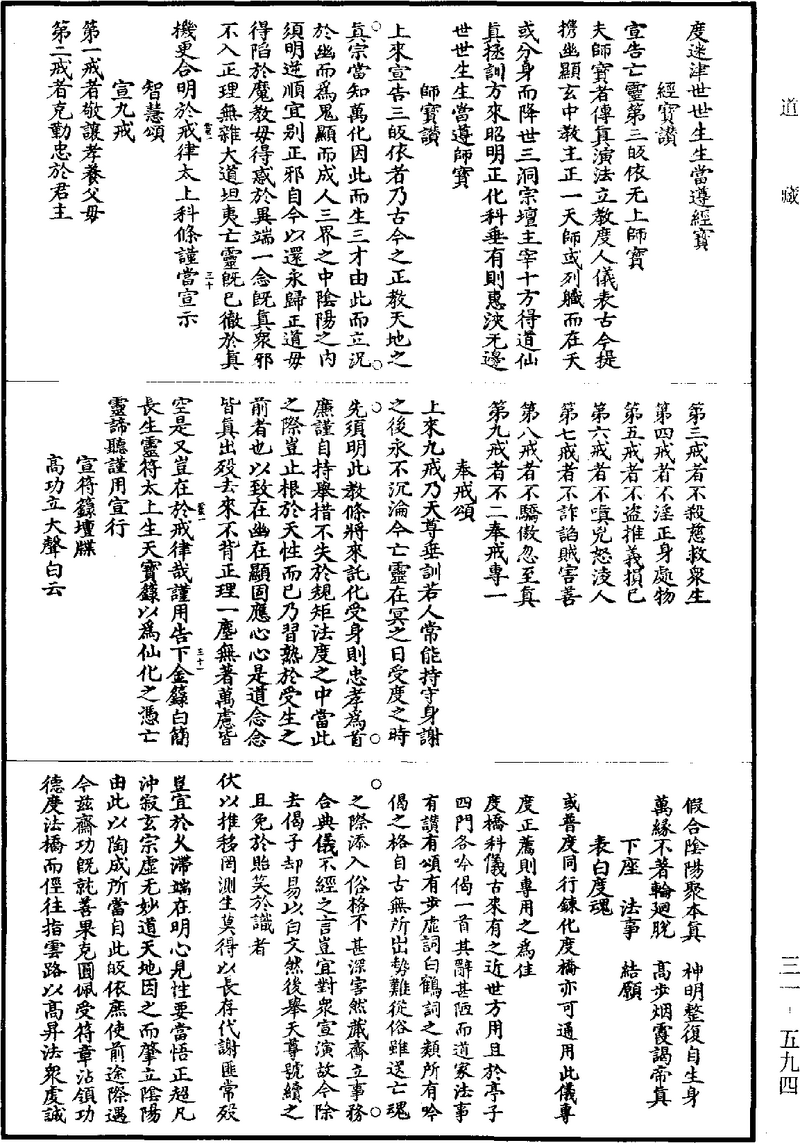 道藏
度迷津世世生生當遵經寶
經寶讃
宣告亡靈第三皈依无上師寶
夫師寶者傳真演法立教度人儀表古今提
携幽顯玄中教主正一天師或列軄而在天
或分身而降世三洞宗壇主宰十方得道仙
真拯訓方來昭明正化科垂有則惠浹无邊
世世生生當遵師寶
師寶讃
上來宣告三皈依者乃古今之正教天地之
真宗當知萬化因此而生三才由此而立況
於幽而爲鬼顯而成人三界之中陰陽之内
須明逆順宜别正邪自今以還永歸正道毋
得陷於魔教毋得惑於異端一念旣真衆邪
不入正理無雜大道坦夷亡靈旣已徹於真
機更合明於戒律太上科條謹當宣示
三十
智慧頌
宣九戒
第一戒者敬讓孝養父母
第二戒者克勤忠於君主
第三戒者不殺慈救衆生
第四戒者不淫正身處物
第五戒者不盗推義損己
第六戒者不嗔兇怒凌人
第七戒者不詐諂賊害善
第八戒者不驕傲忽至真
第九戒者不二奉戒專一
奉戒頌
上來九戒乃天尊垂訓若人常能持守身謝
之後永不沉淪今亡靈在冥之日受度之時
先須明此教條將來託化受身則忠孝爲首
廉謹自持舉措不失於規矩法度之中當此
之際豈止根於天性而已乃習熟於受生之
前者也以致在幽在顯固應心心是道念念
皆真出殁去來不背正理一塵無著萬慮皆
空是又豈在於戒律哉謹用告下金籙白簡
三十一
長生靈符太上生天寶籙以爲仙化之憑亡
靈諦聽謹用宣行
宣符籙壇牒
高功立大聲白云
假合陰陽聚本真　神明整復自生身
萬緣不著輪廻脱　高步烟霞謁帝真
下座　法事　結願
表白度魂
或普度同行鍊化度橋亦可通用此儀專
度正薦則專用之爲佳
度橋科儀古來有之近世方用且於亭子
四門各吟偈一首其辭甚陋而道家法事
有讃有頌有步虛詞白鶴詞之類所有吟
偈之格自古無所出勢難從俗雖送亡魂
之際添入俗格不甚深害然薦齋立事務
合典儀不經之言豈宜對衆宣演故今除
去偈子却易以白文然後舉天尊號續之
且免於貽笑於識者
伏以推移罔測生莫得以長存代謝匪常殁
豈宜於久滯端在明心見性要當悟正超凡
沖寂玄宗虛无妙道天地因之而肇立陰陽
由此以陶成所當自此皈依庶使前途際遇
今茲齋功旣就善果克圓佩受符章沾領功
德度法橋而俓往指雲路以高昇法衆虔誠
三一‐五九四